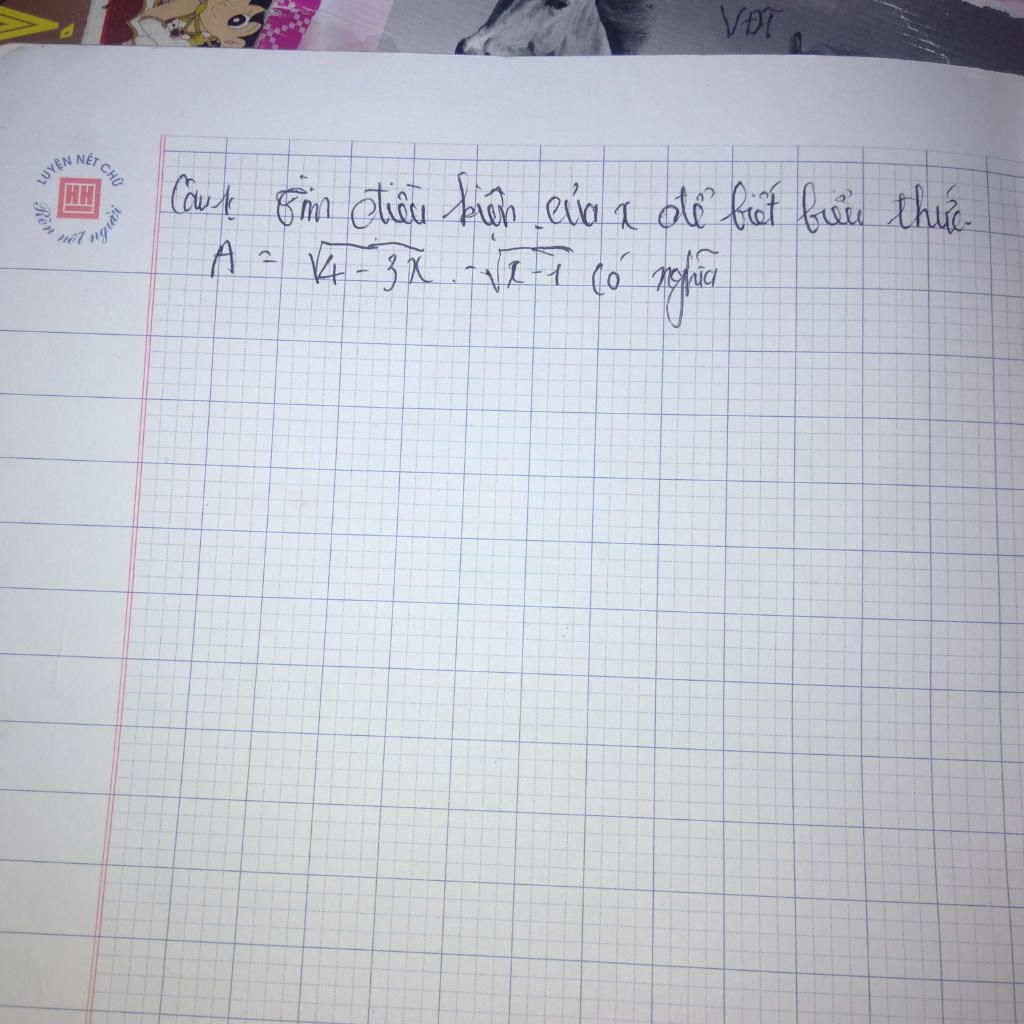 VĐT
LUYỆN NÉT CHỮ
HH
Rèn nết người
Câu 1: Tìm điều kiện của x để biết biểu thức.
A = √4 - 3x - √x-1 có nghĩa